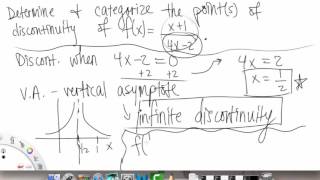 Determine & categorize the point(s) of
discontinuity of f(x) = x+1 / 4x-2
Discont. when 4x-2=0 → 4x=2
+2 +2
x = 1/2
V.A. - vertical asymptote
infinite discontinuity
1/2 1 x
f(